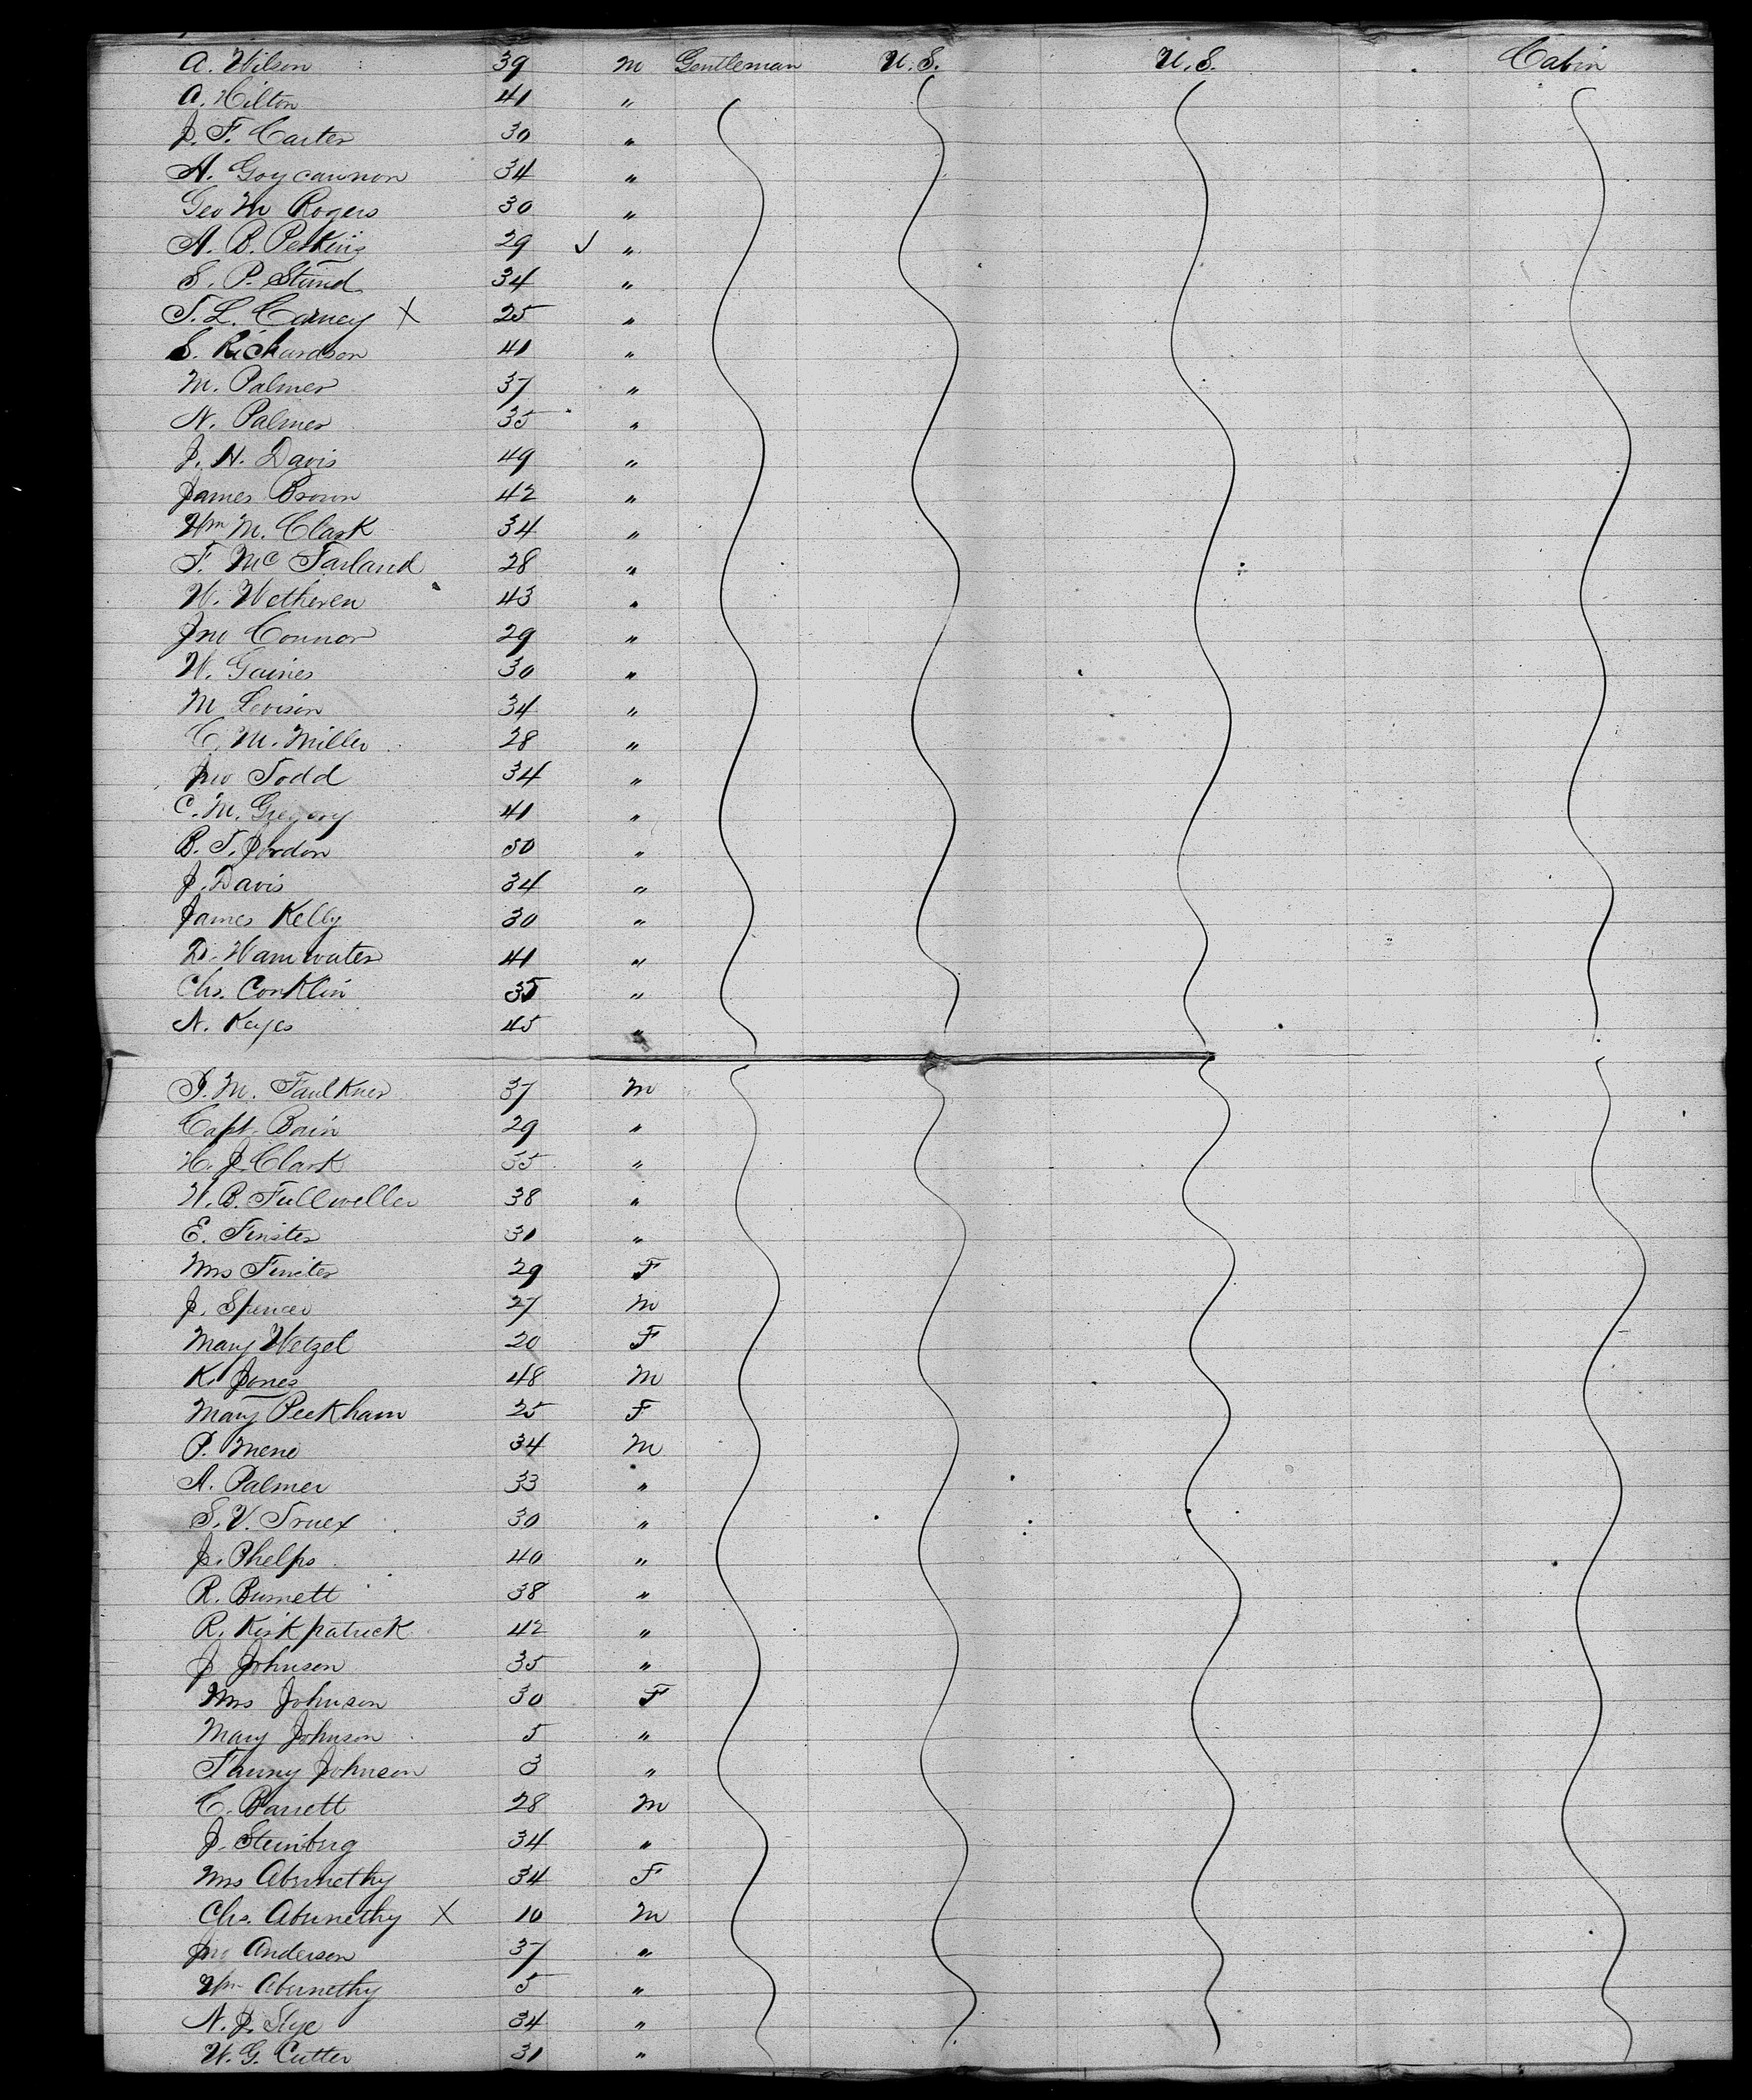 A. Wilson 39 M Gentleman U.S. U.S. Cabin
A. Hilton 41 "
J. F. Carter 30 "
A. Goycannon 34 "
Geo M Rogers 30 "
A. B. Perkins 29 ✓ "
S. P. 34 "
T. L. Carney X 25 "
S. Richardson 41 "
M. Palmer 37 "
N. Palmer 35 "
J. H. Davis 49 "
James Brown 42 "
Wm M. Clark 34 "
F. Mc Farland 28 "
W. Wetheren 43 "
Jno Connor 29 "
W. Gaines 30 "
M Levison 34 "
C. M. Miller 28 "
Jno Todd 34 "
C. M. Gregory 41 "
B. T. Jordon 30 "
J. Davis 34 "
James Kelly 30 "
D. Wamwater 41 "
Chs. Conklin 35 "
N. Keyes 45 "
T. M. Faulkner 37 M
Capt. Bain 29 "
H. J. Clark 35 "
W. B. Fullweller 38 "
E. Finster 31 "
Mrs Finster 29 F
J. Spencer 27 M
Mary Wetzel 20 F
K. Jones 48 M
Mary Peckham 25 F
P. Mene 34 M
A. Palmer 33 "
S. V. Truex 30 "
J. Phelps 40 "
R. Burnett 38 "
R. Kirkpatrick 42 "
J Johnson 35 "
Mrs Johnson 30 F
Mary Johnson 5 "
Fanny Johnson 3 "
C. Barrett 28 M
J. Steinberg 34 "
Mrs Abernethy 34 F
Chs. Abernethy X 10 M
Jno Anderson 37 "
Wm Abernethy 5 "
N. J. 34 "
W. G. Cutter 31 "